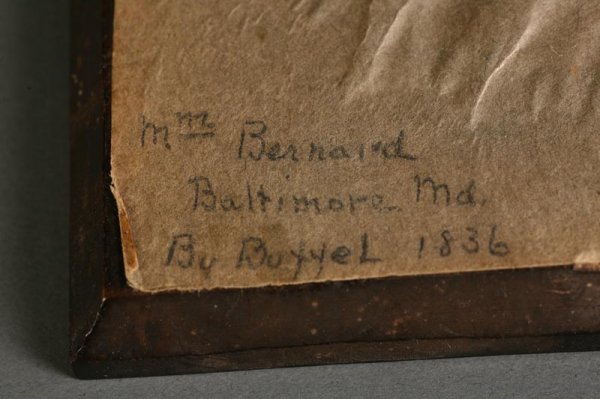 Mᵐᵐ Bernard
Baltimore Md.
By Buyyel 1836